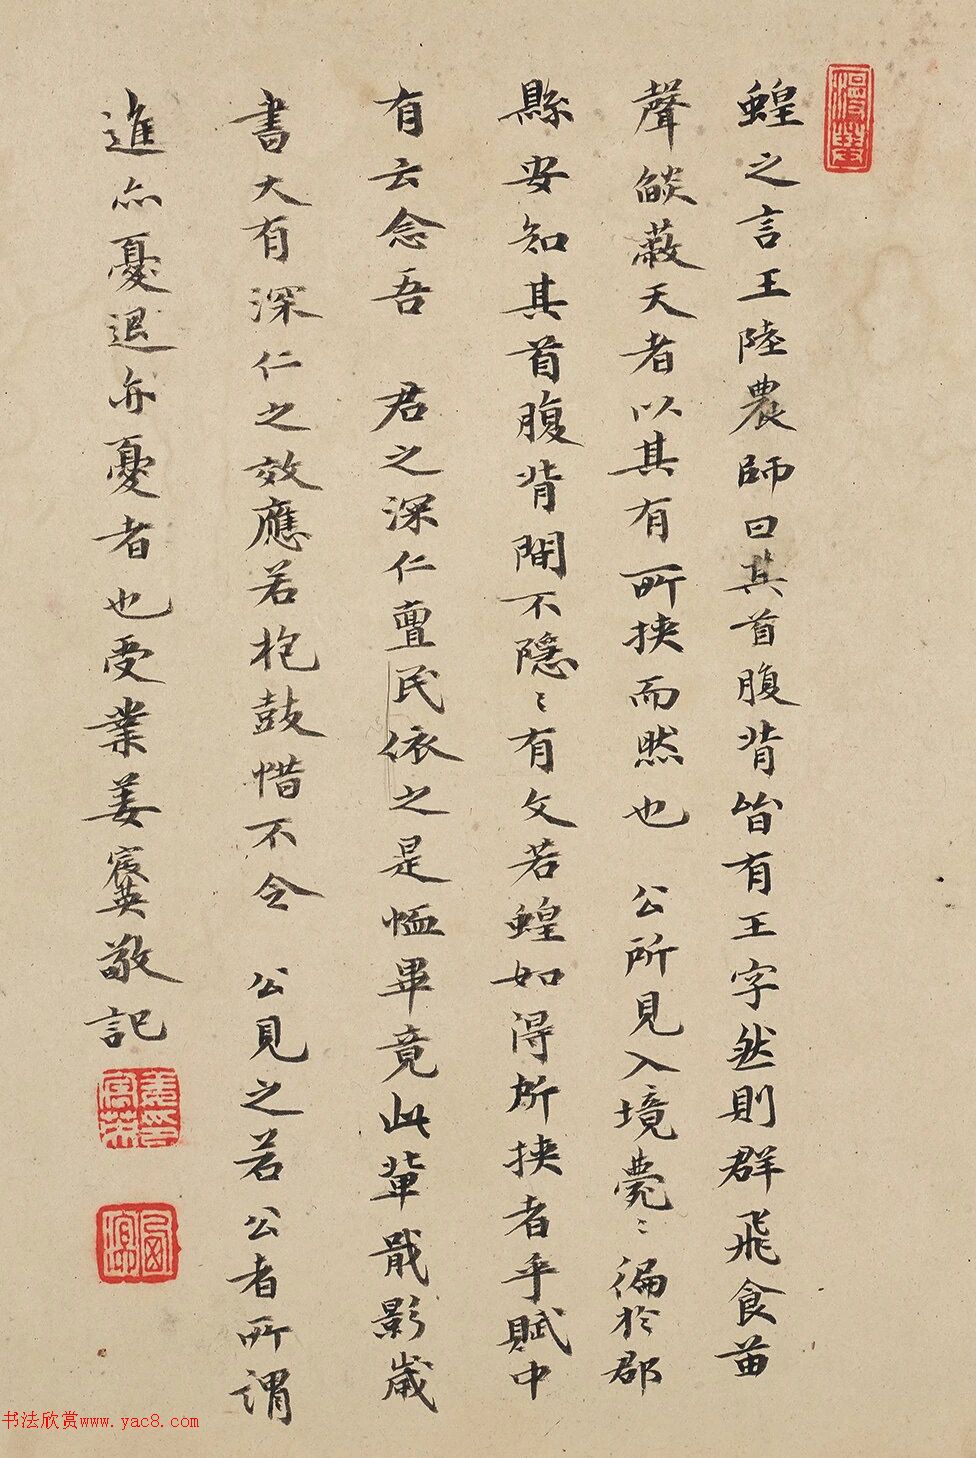 蝗之言王陸農師曰其首腹背皆有王字然則群飛食苗
聲燄蔽天者以其有所挾而然也　公所見入境薨〻徧於郡
縣安知其首腹背間不隱〻有文若蝗如得所挾者乎賦中
有云念吾　君之深仁亶民依之是恤畢竟此輩戢影歲
書大有深仁之效應若枹鼓惜不令　公見之若公者所謂
進亦憂退亦憂者也受業姜宸英敬記
书法欣赏www.yac8.com